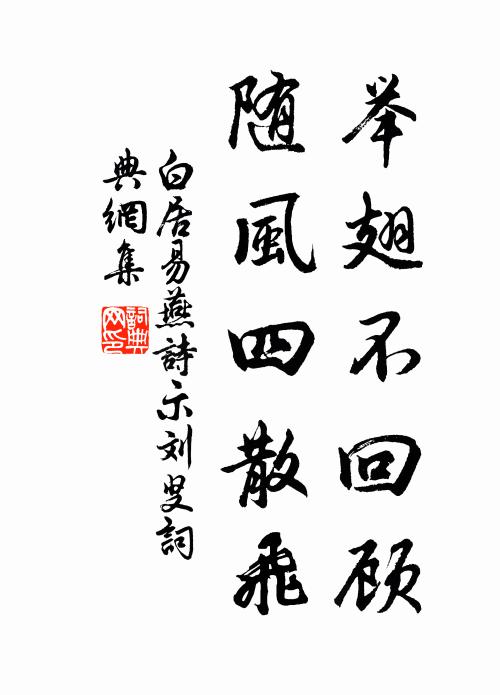 举翅不回顾
随風四散飛
白居易燕詩示刘叟詞
典網集
詞典网印